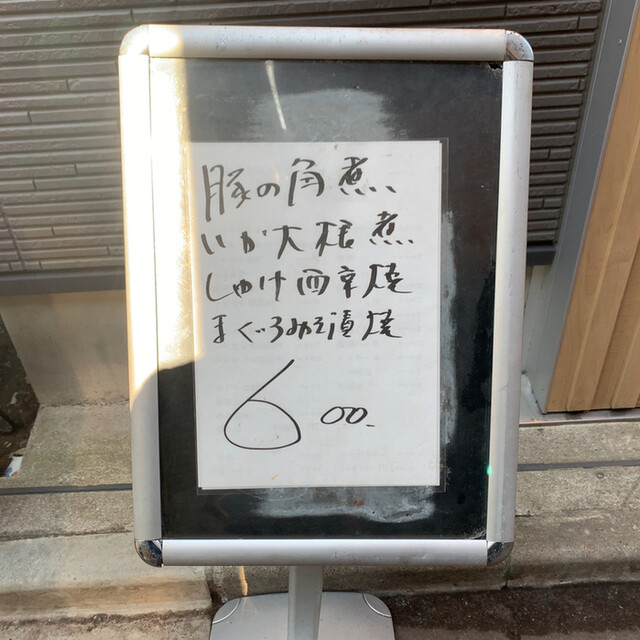 豚の角煮
いか大根煮
しゃけ西京焼
まぐろみそ漬焼
600-